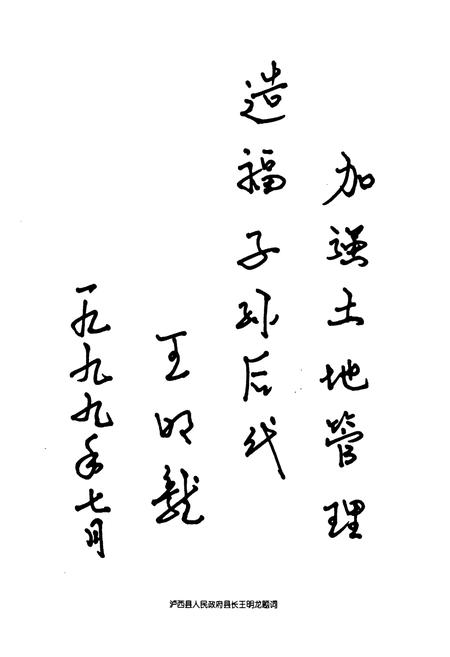 加强土地管理
造福子孙后代
王明龙
一九九九年七月
泸西县人民政府县长王明龙题词